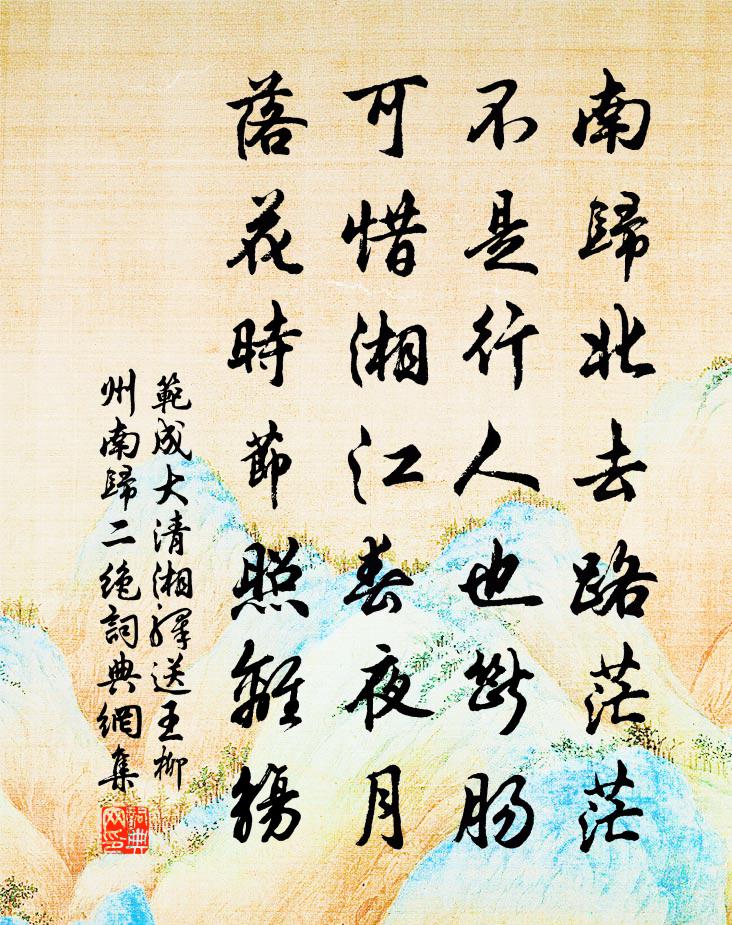 南歸北去路茫茫
不是行人也斷腸
可惜湘江春夜月
落花時節照離觴
範成大清湘驛送王柳
州南歸二絶詞典網集
詞典
网印